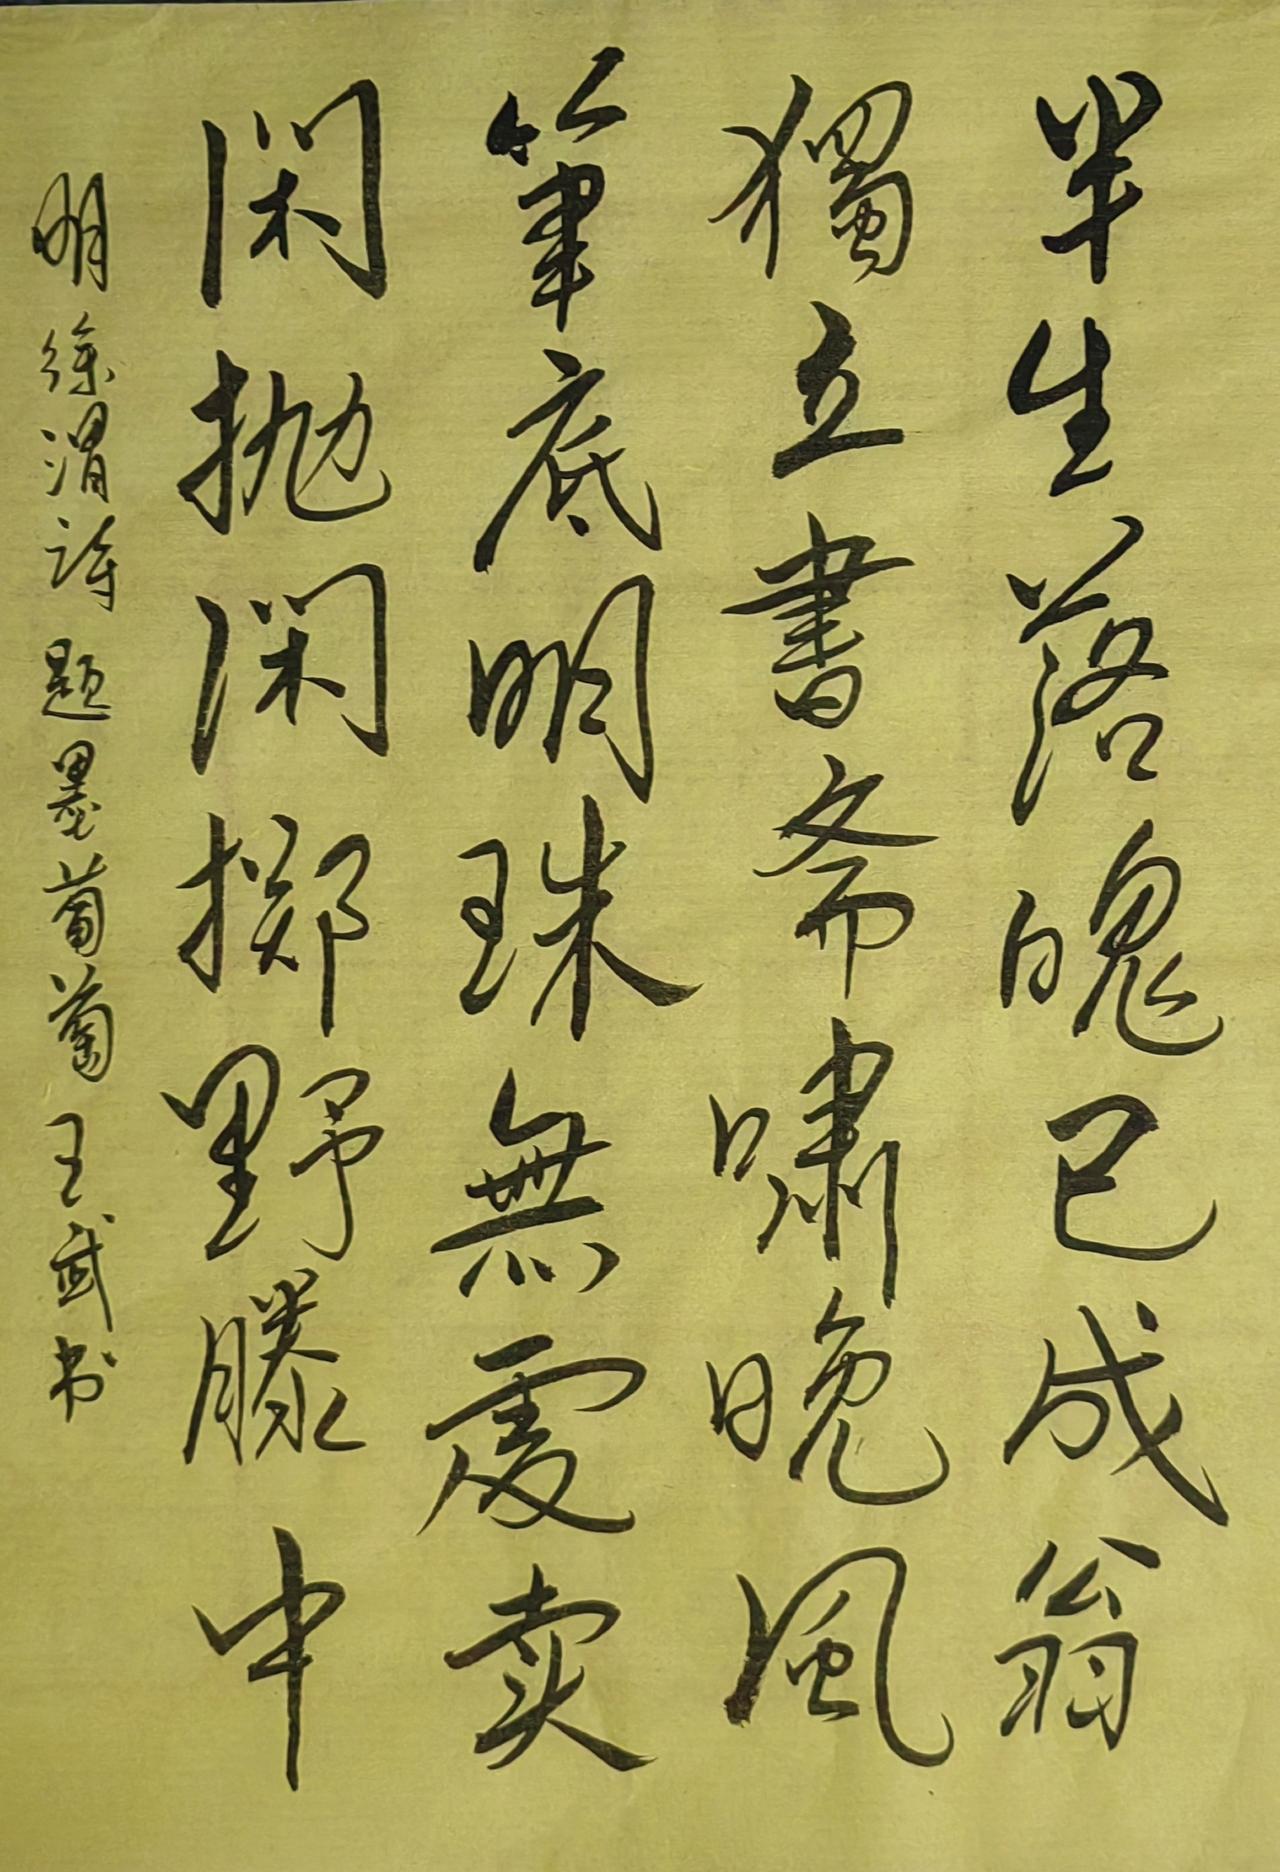 半生落魄已成翁
獨立書斋嘯晚風
筆底明珠無處卖
閑抛閑掷野滕中
明徐渭诗题墨葡萄王武书